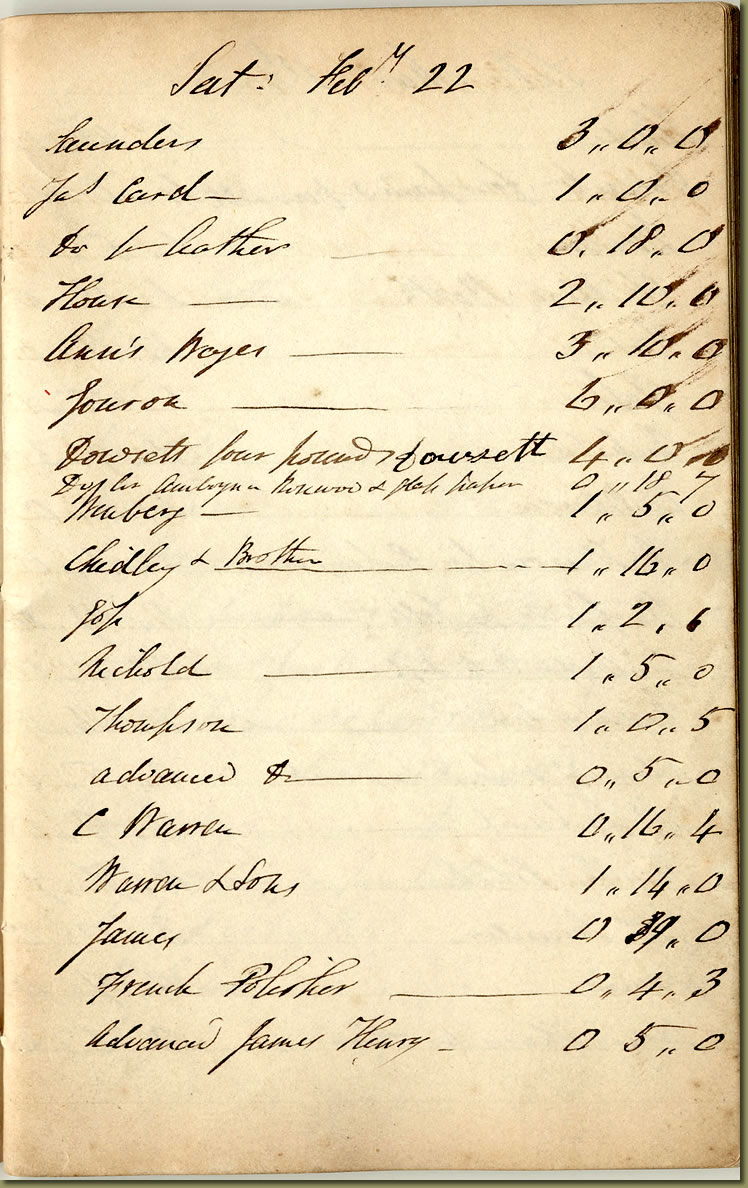 Sat: Feby 22
Saunders 3 „ 0 „ 0
Jas Card – 1 „ 0 „ 0
Do for leather — 0 . 18 . 0
House — 2 „ 10 „ 0
Ann's Wages — 3 „ 10 „ 0
— 6 „ 0 „ 0
Dowsett four pounds Dowsett 4 „ 0 „ 0
Do for Amboyna Rosewood & glass paper 0 „ 18 „ 7
— 1 „ 5 „ 0
Chidley & Brother — 1 „ 16 „ 0
1 „ 2 „ 6
Nichold — 1 „ 5 „ 0
Thompson 1 „ 0 „ 5
advanced Do — 0 „ 5 „ 0
C Warren 0 „ 16 „ 4
Warren & Sons 1 „ 14 „ 0
James 0 „ 0
French Polisher — 0 „ 4 „ 3
Advanced James Henry – 0 5 „ 0